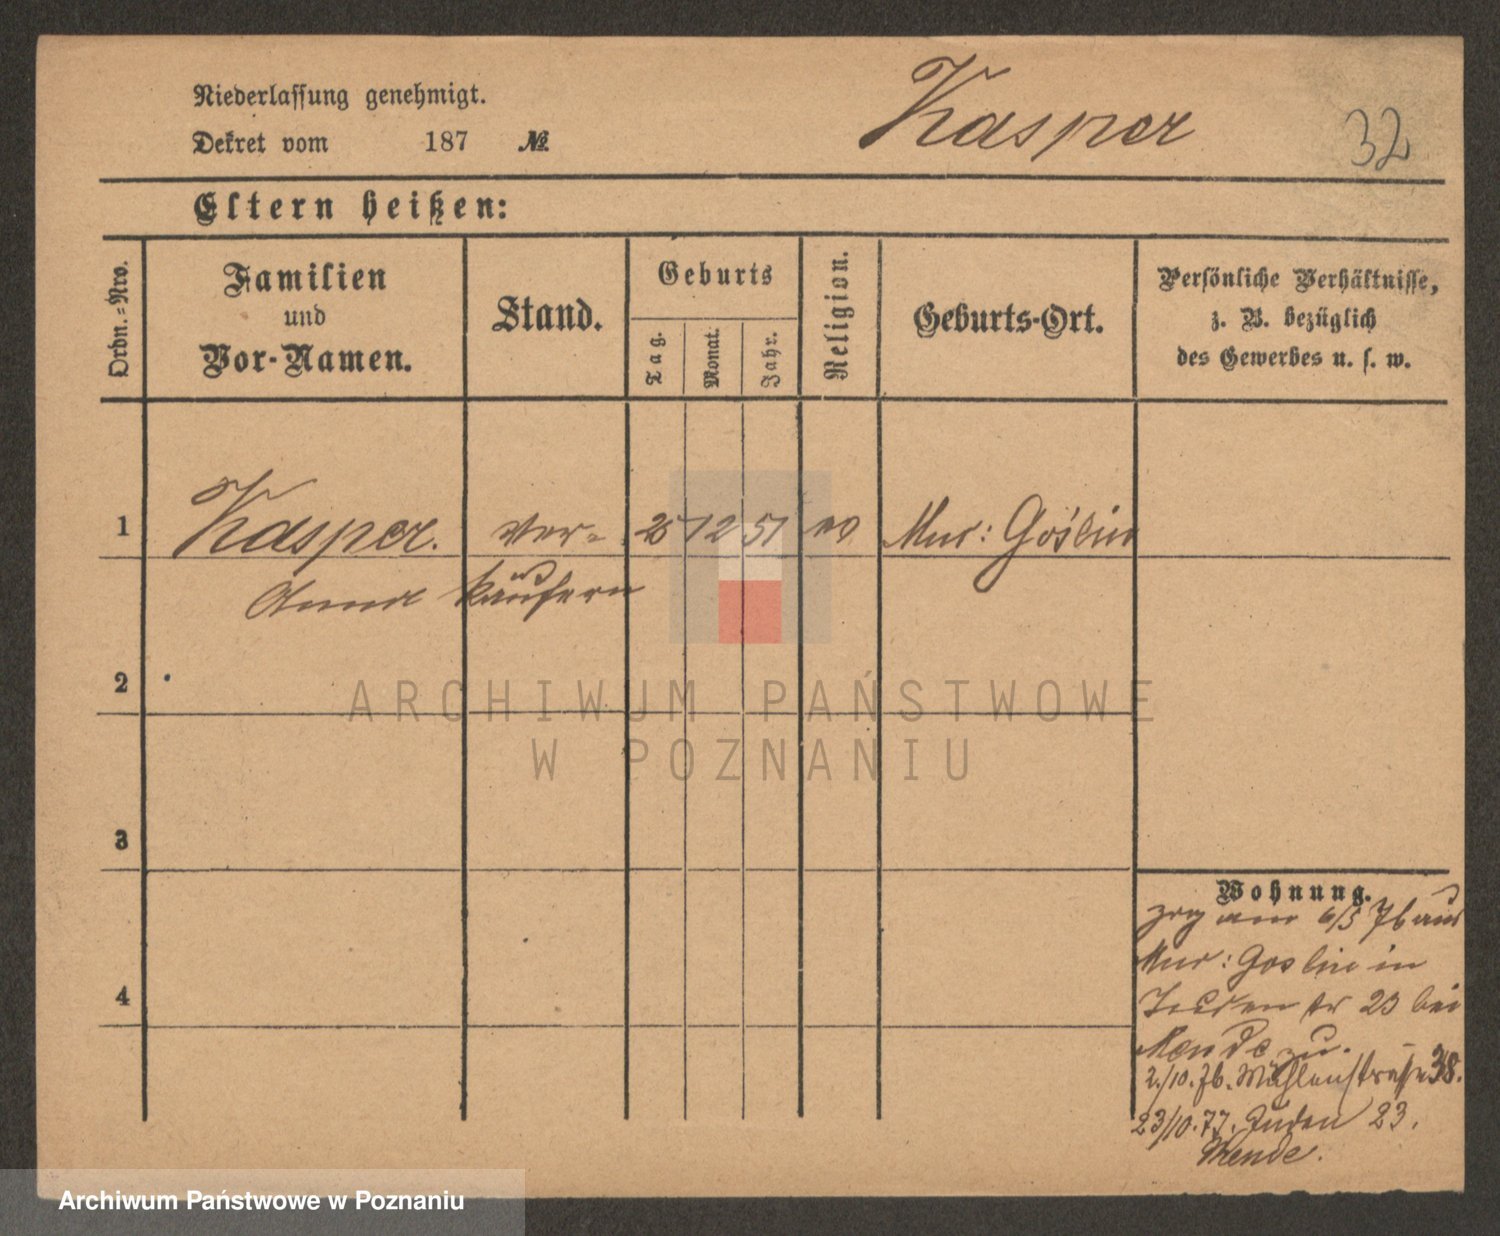 Niederlassung genehmigt.
Dekret vom 187 №
Kasper
32
Eltern heißen:
Ordn.=Nro.
Familien
und
Vor-Namen.
Stand.
Geburts
Tag.
Monat.
Jahr.
Religion.
Geburts-Ort.
Persönliche Verhältnisse,
z. B. bezüglich
des Gewerbes u. s. w.
1 Kasper. Ver= 25 12 51 Mur: Goślin
Anna käufern
2
3
4
Wohnung.
zog am 6/5 76 aus
Mur: Goslin in
Juden str 23 bei
Mende zu.
2./10. 76. Mühlenstrasse 38.
23/10. 77. Juden 23.
Mende.
ARCHIWUM PAŃSTWOWE
W POZNANIU
Archiwum Państwowe w Poznaniu